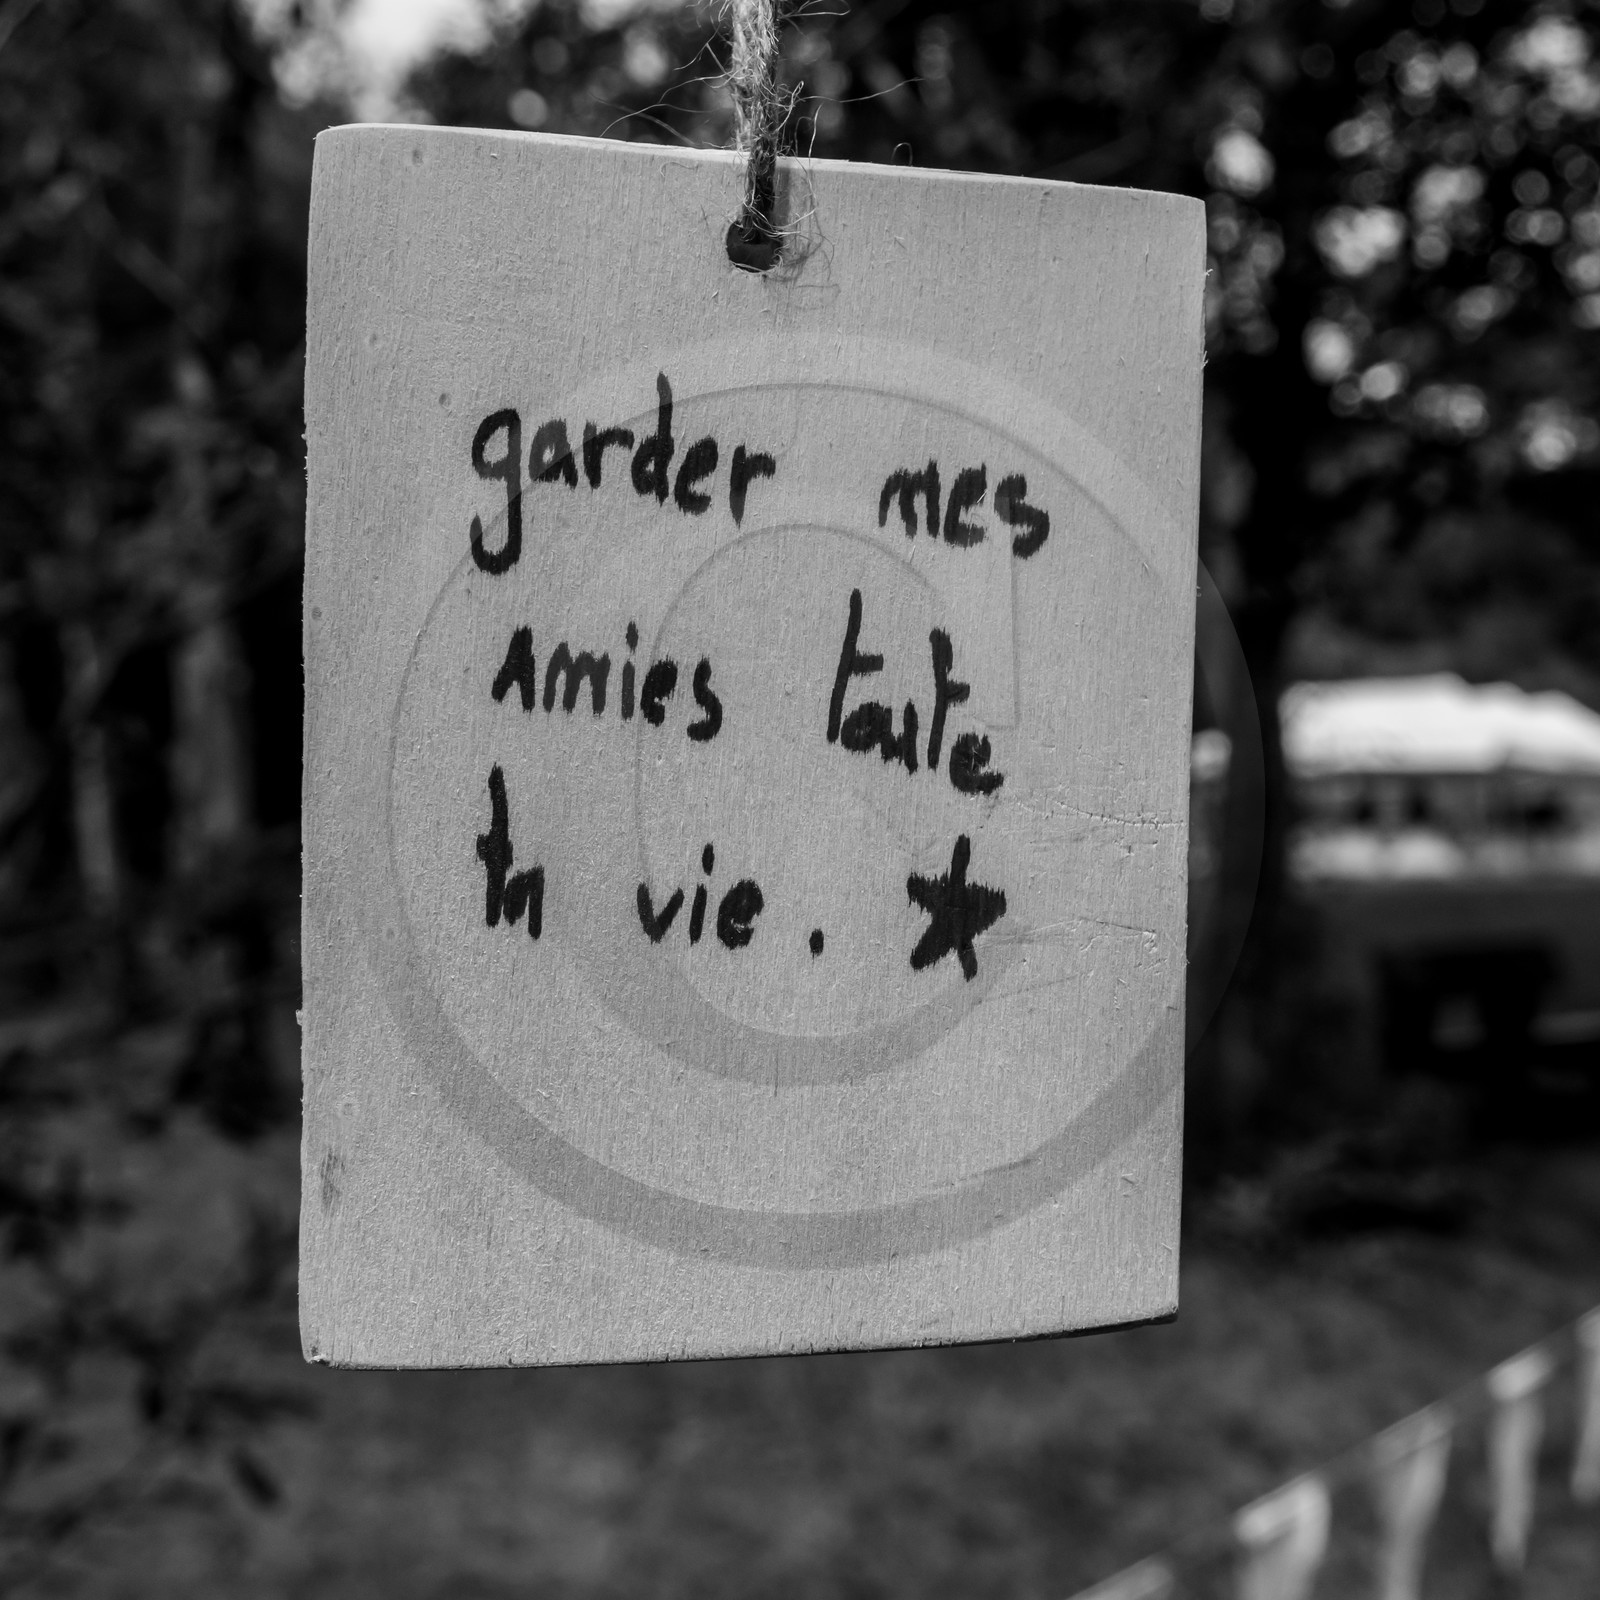 garder mes
amies toute
la vie. ★